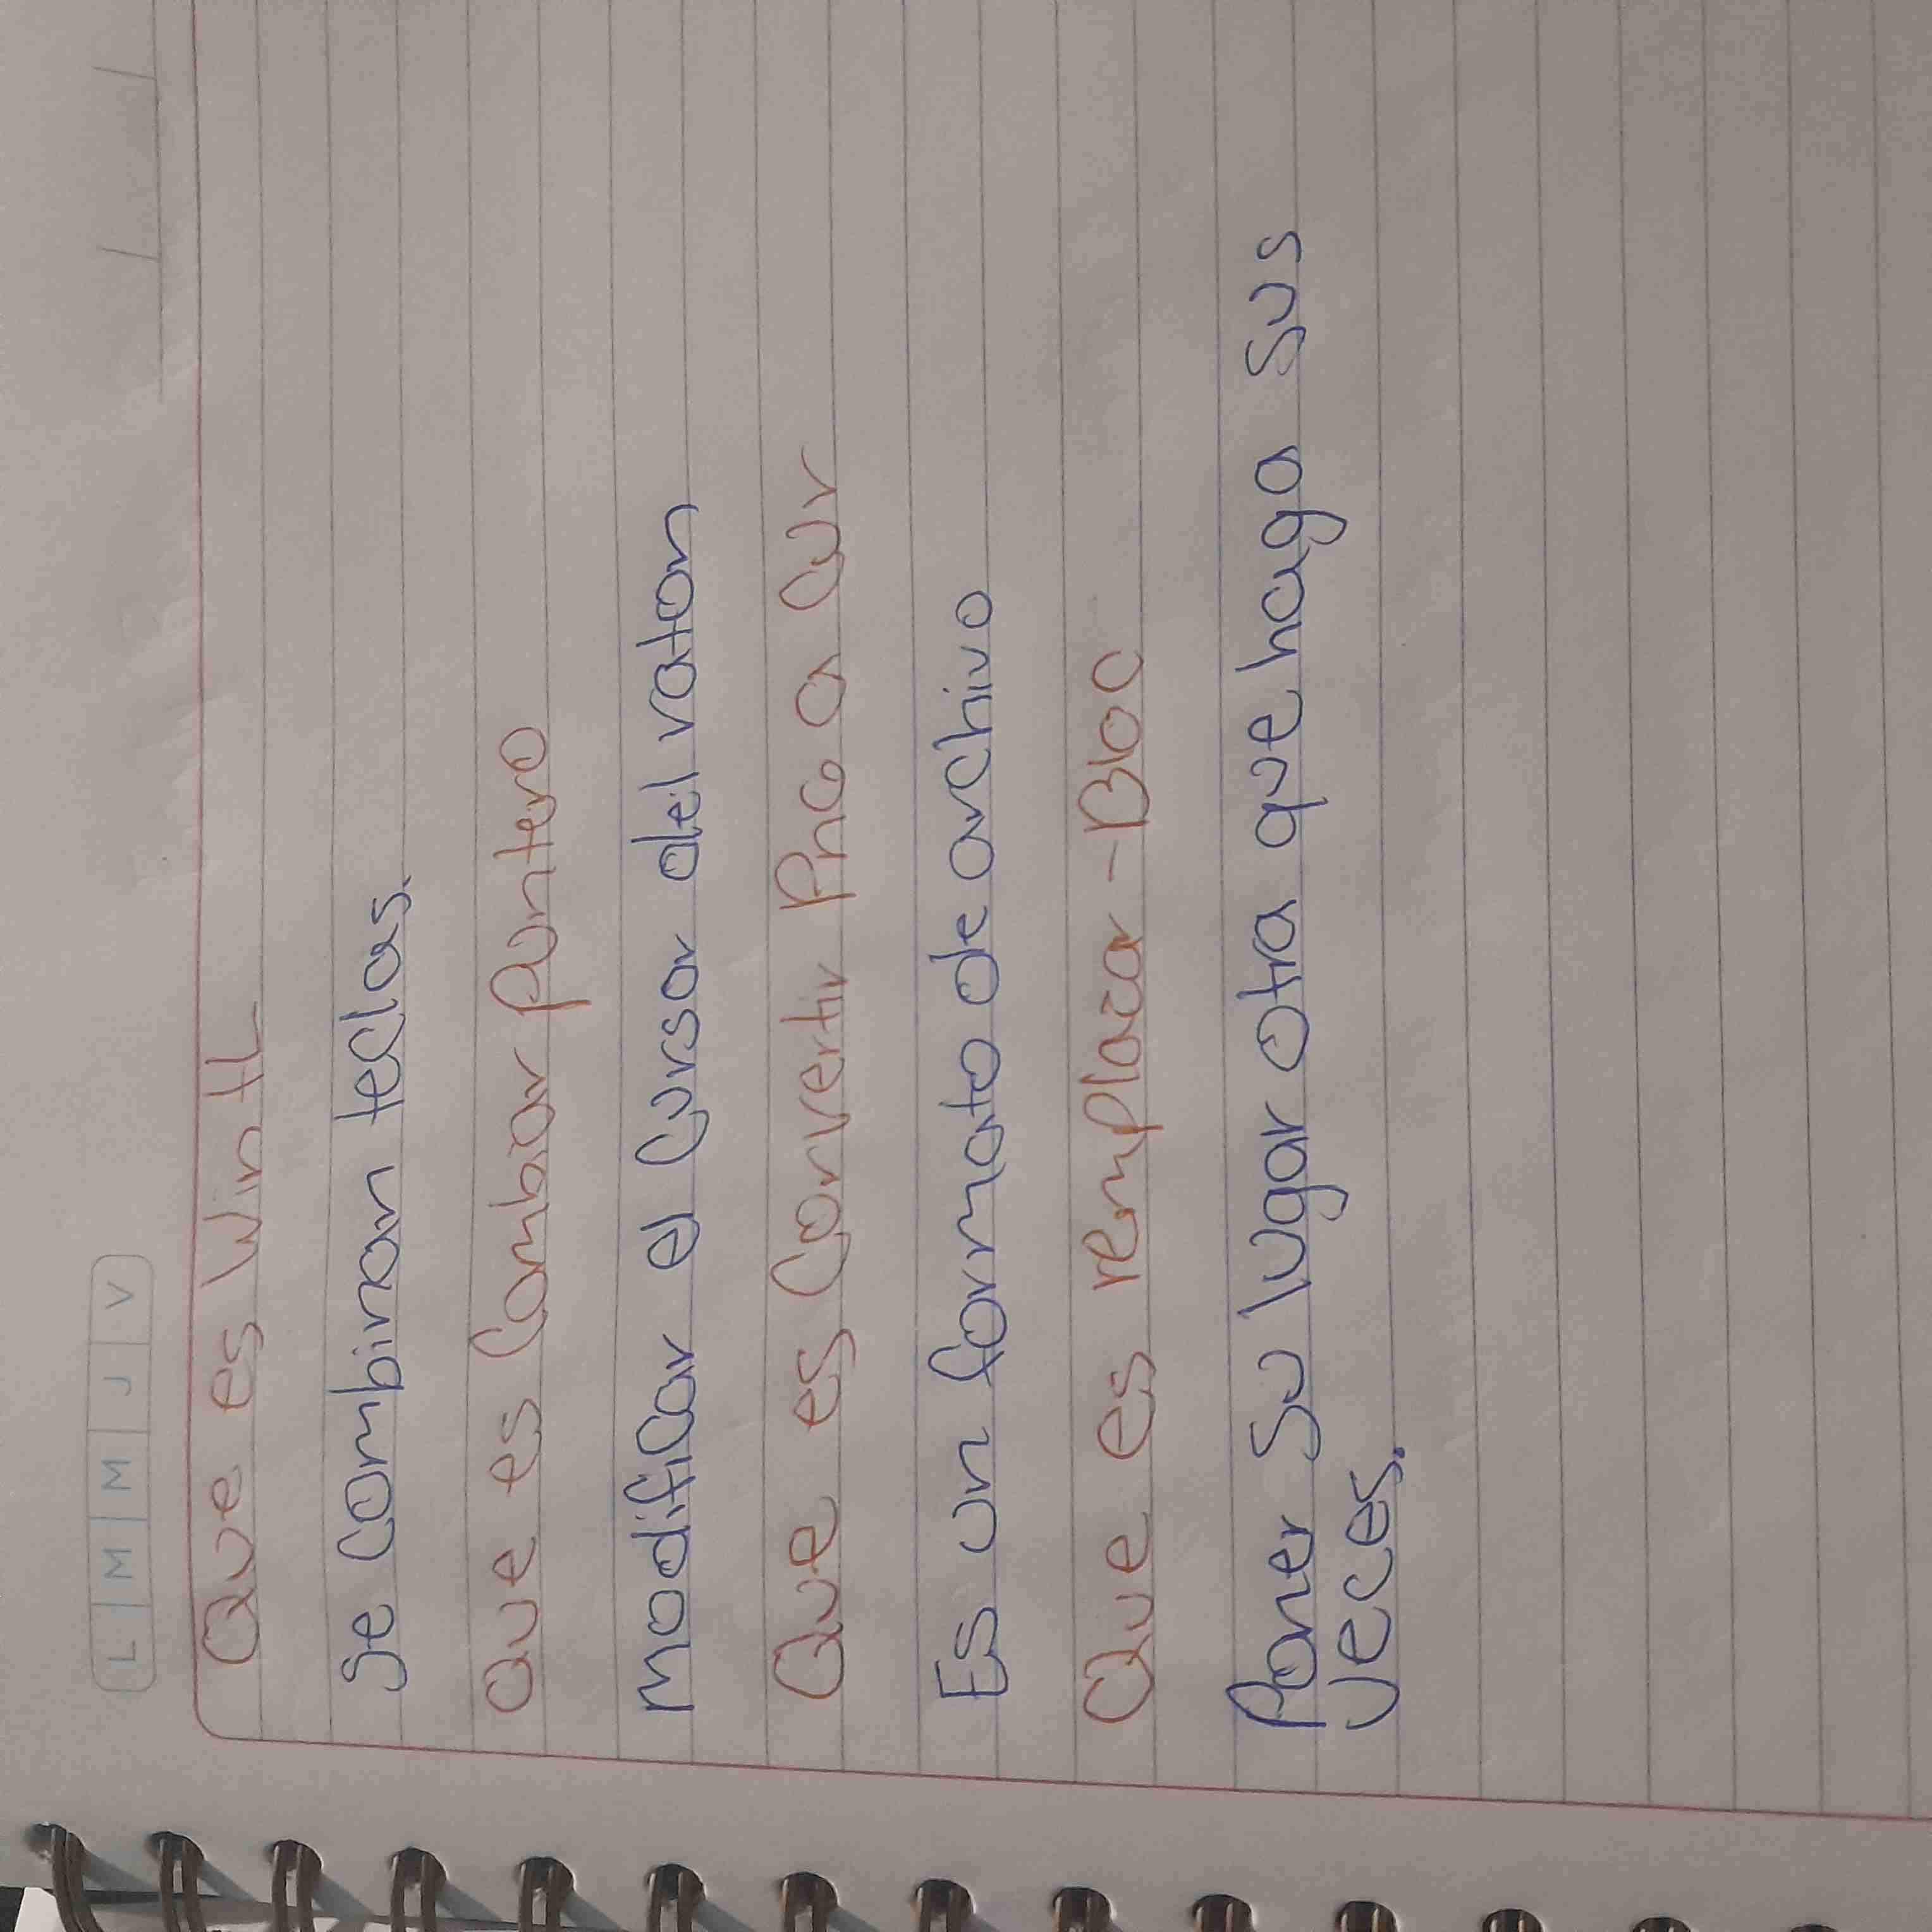 L M M J V
Que es Win tL
Se combinan teclas.
Que es Cambiar puntero
Modificar el Cursor del raton
Que es Convertir PnG a Cur
Es un formato de archivo
Que es remplazar-Bloc
Poner Su lugar otra que haga sus
veces.